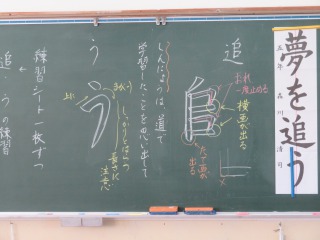 夢を追う
五年 森川 清司
追
おれ
一度止める
横画が出る
たて画が出る
しんにょうは、道で
学習したことを思い出して
う
う
しっかりとはらう
長さに注意
練習シート一枚ずつ
追 うの練習